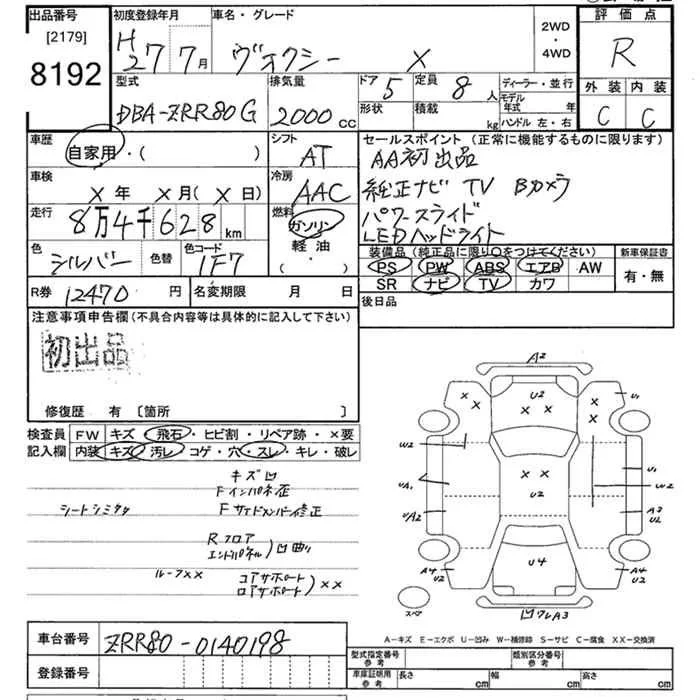 出品番号 初度登録年月 車名・グレード 2WD・4WD 評価点
[2179]
8192
H27 7月 ヴォクシー X R
型式 排気量 ドア 5 定員 8人 ディーラー・並行 外装 内装
DBA-ZRR80G 2000cc 形状 積載 kg モデル年式 年 C C
ハンドル 左・右
車歴 シフト セールスポイント (正常に機能するものに限ります)
自家用・( ) AT AA初出品
車検 冷房 純正ナビ TV Bカメラ
X年 X月(X日) AAC パワースライド
走行 燃料 LEDヘッドライト
8万4千628km ガソリン・軽油・( )
色 色替 色コード 装備品 (純正品に限り○をつけてください) 新車保証書
シルバー 1F7 PS PW ABS エアB AW 有・無
SR ナビ TV カワ
R券 12470円 名変期限 月 日 後日品
注意事項申告欄 (不具合内容等は具体的に記入して下さい)
初出品
修復歴 有 [箇所 ]
検査員記入欄 FW キズ・飛石・ヒビ割・リペア跡・×要
内装 キズ・汚レ・コゲ・穴・スレ・キレ・破レ
キズ凹
Fインパネ歪
シートシミタタ Fサイドメンバー修正
Rフロア
エンドパネル)凹曲り
ルーフXX コアサポート
ロアサポート)XX
A2
U2 U1
W2 U1
W2
UA1 U2
UA2 A3
U2
A4
U2 U4 A4
U2
スペア 凹ワレA3
A-キズ E-エクボ U-凹み W-補修跡 S-サビ C-腐食 XX-交換済
車台番号 ZRR80-0140198
登録番号
型式指定番号 参考 類別区分番号 参考
車庫証明用 参考 長さ cm 幅 cm 高さ cm